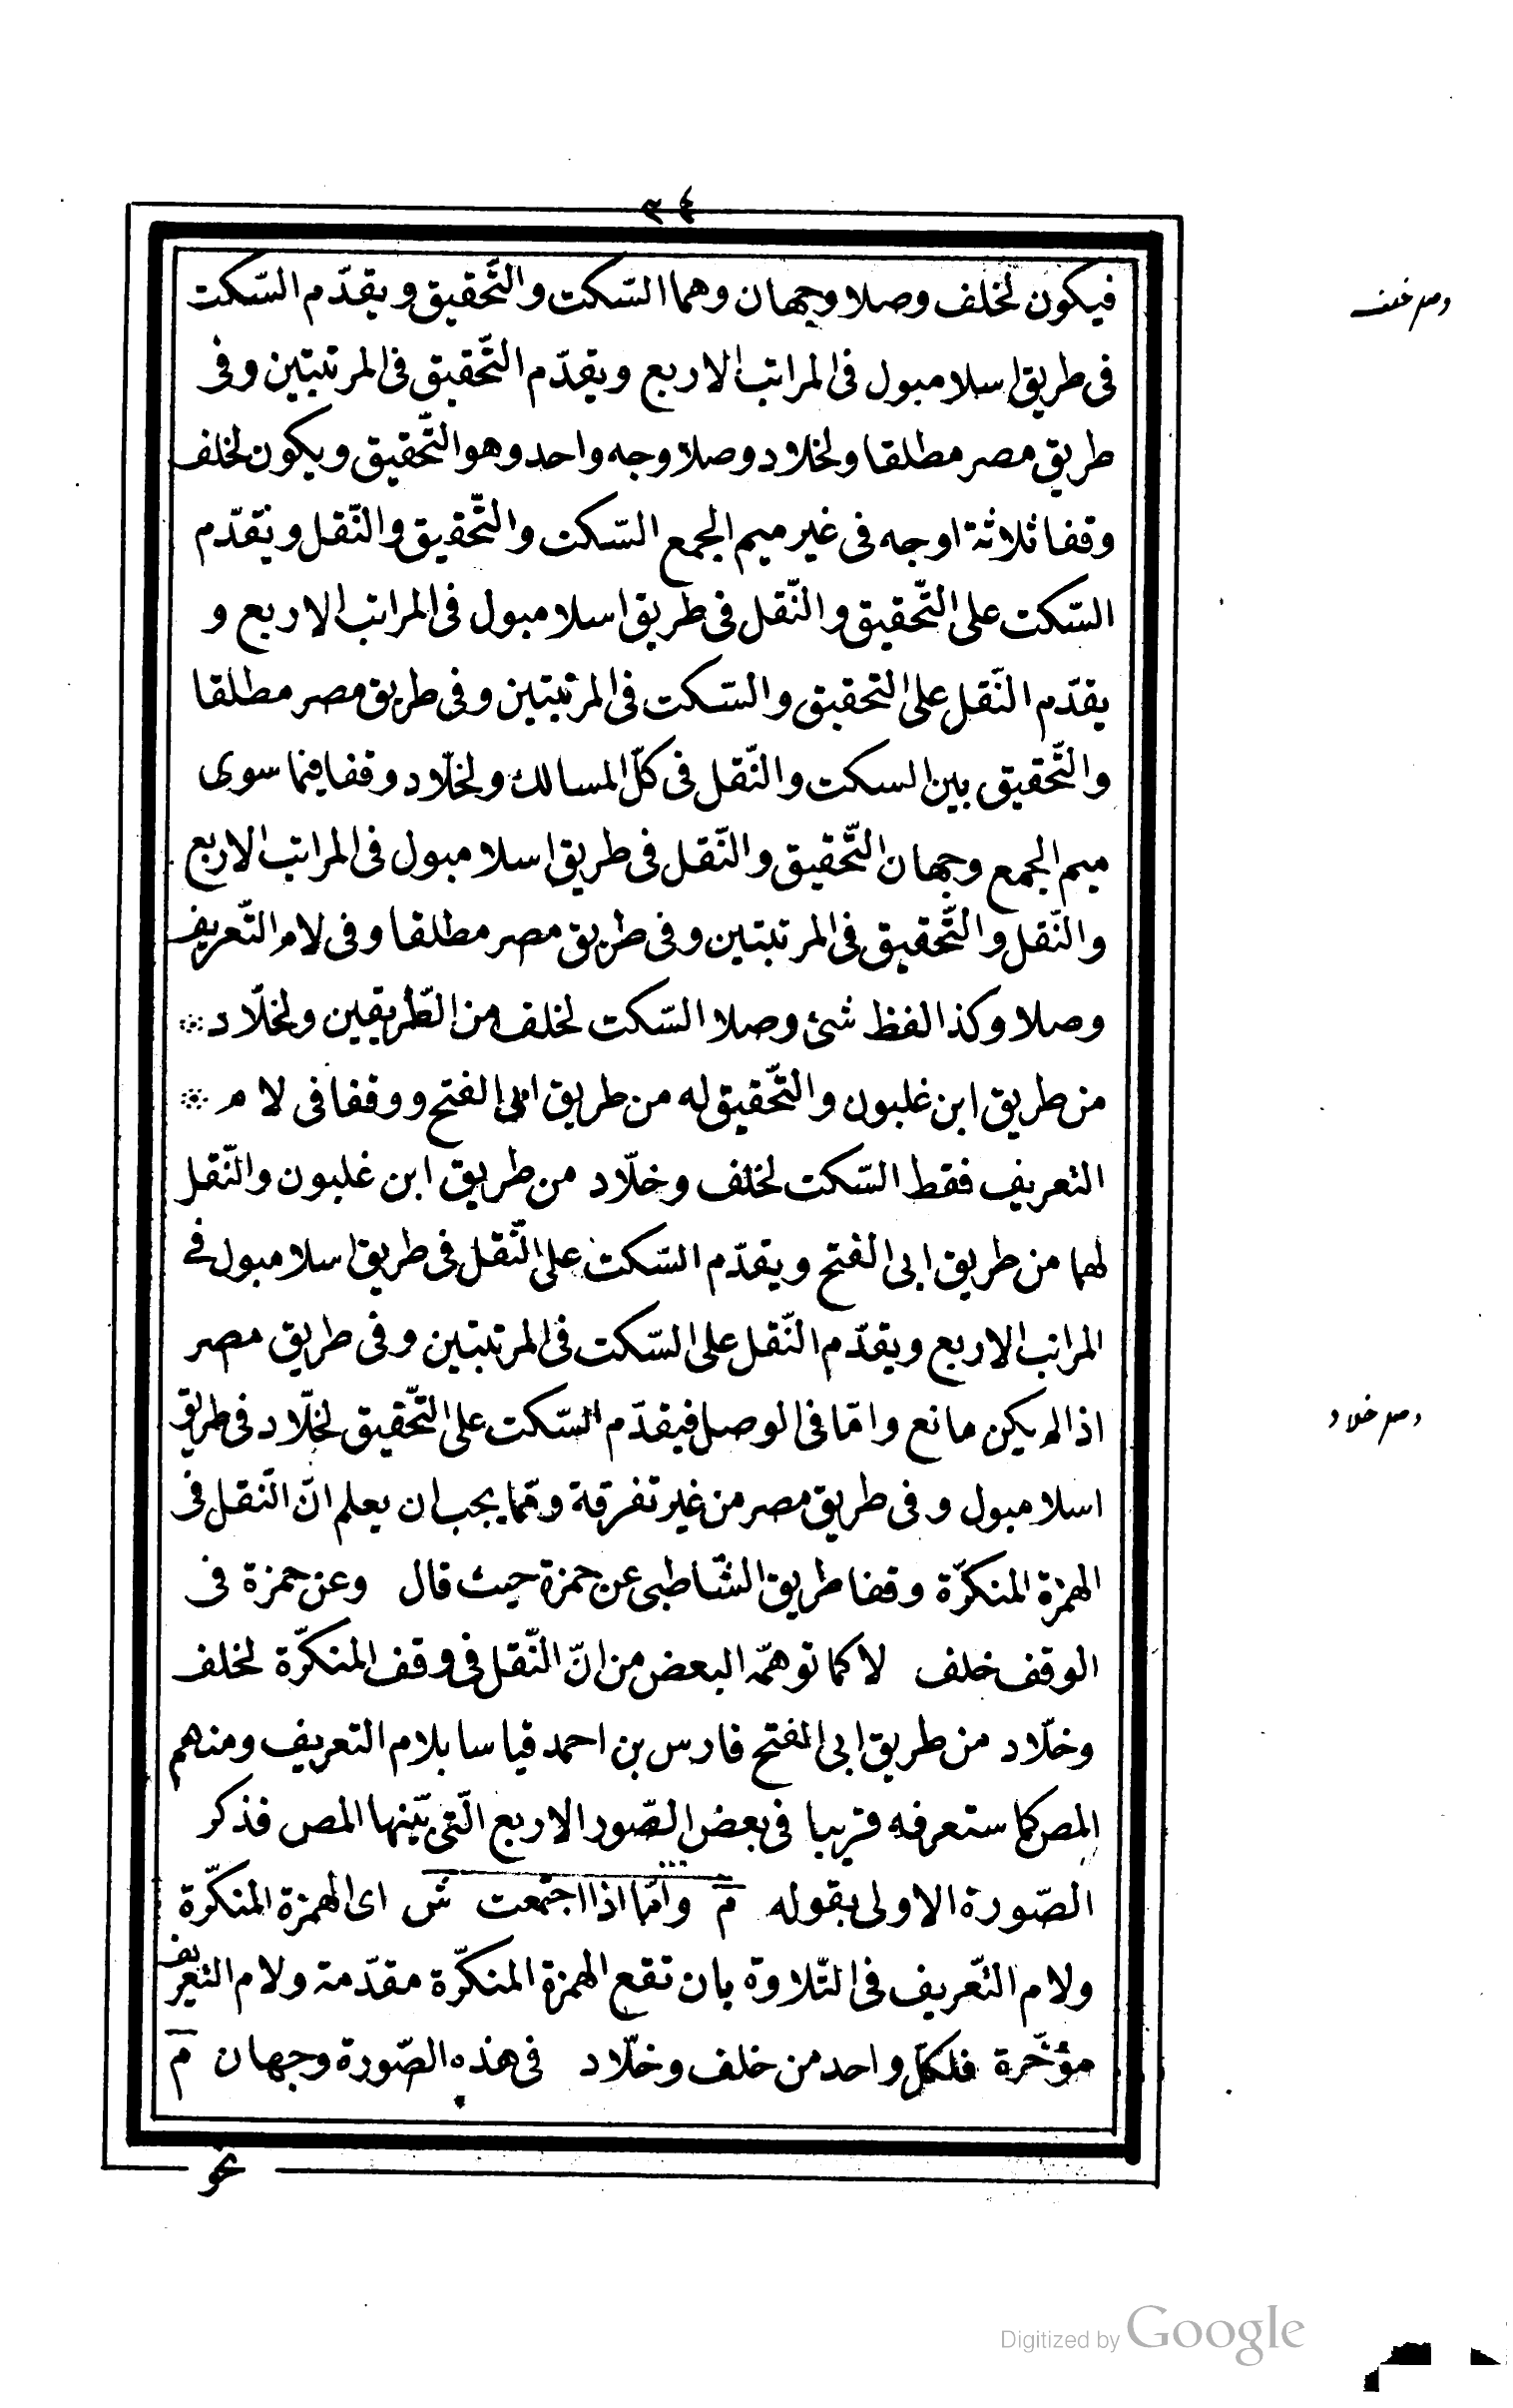 ٣٤
فيكون لخلف وصلا وجهان وهما السّكت والتّحقيق ويقدّم السّكت
وصل خلف
فى طريق اسلامبول فى المراتب الاربع ويقدّم التّحقيق فى المرتبتين وفى
طريق مصر مطلقا ولخلاد وصلا وجه واحد وهو التّحقيق ويكون لخلف
وقفا ثلاثة اوجه فى غير ميم الجمع السّكت والتّحقيق والنّقل ويقدّم
السّكت على التّحقيق والنّقل فى طريق اسلامبول فى المراتب الاربع و
يقدّم النّقل على التحقيق والسّكت فى المرتبتين وفى طريق مصر مطلقا
والتّحقيق بين السكت والنّقل فى كلّ المسالك ولخلّاد وقفا فيما سوى
ميم الجمع وجهان التّحقيق والنّقل فى طريق اسلامبول فى المراتب الاربع
والنّقل والتّحقيق فى المرتبتين وفى طريق مصر مطلقا وفى لام التّعريف
وصلا وكذا لفظ شئ وصلا السّكت لخلف من الطّريقين ولخلّاد
من طريق ابن غلبون والتّحقيق له من طريق ابى الفتح ووقفا فى لام
التعريف فقط السّكت لخلف وخلّاد من طريق ابن غلبون والنّقل
لهما من طريق ابى الفتح ويقدّم السّكت على النّقل فى طريق اسلامبول فے
المراتب الاربع ويقدّم النّقل على السّكت فى المرتبتين وفى طريق مصر
اذا لم يكن مانع وامّا فى الوصل فيقدّم السّكت على التّحقيق لخلّاد فى طريق
وصل خلاد
اسلامبول وفى طريق مصر من غير تفرقة وممّا يجب ان يعلم انّ النّقل فى
الهمزة المنكرّة وقفا طريق الشّاطبى عن حمزة حيث قال وعن حمزة فى
الوقف خلف لا كما توهّمه البعض من انّ النّقل فى وقف المنكرّة لخلف
وخلّاد من طريق ابى الفتح فارس بن احمد قياسا بلام التعريف ومنهم
المص كما ستعرفه قريبا فى بعض الصّور الاربع الّتى بيّنها المص فذكر
الصّورة الاولى بقوله م وامّا اذا اجتمعت ش اى الهمزة المنكرّة
ولام التّعريف فى التّلاوة بان تقع الهمزة المنكرّة مقدّمة ولام التعريف
مؤخّرة فلكلّ واحد من خلف وخلّاد فى هذه الصّورة وجهان م
نحو
Digitized by Google